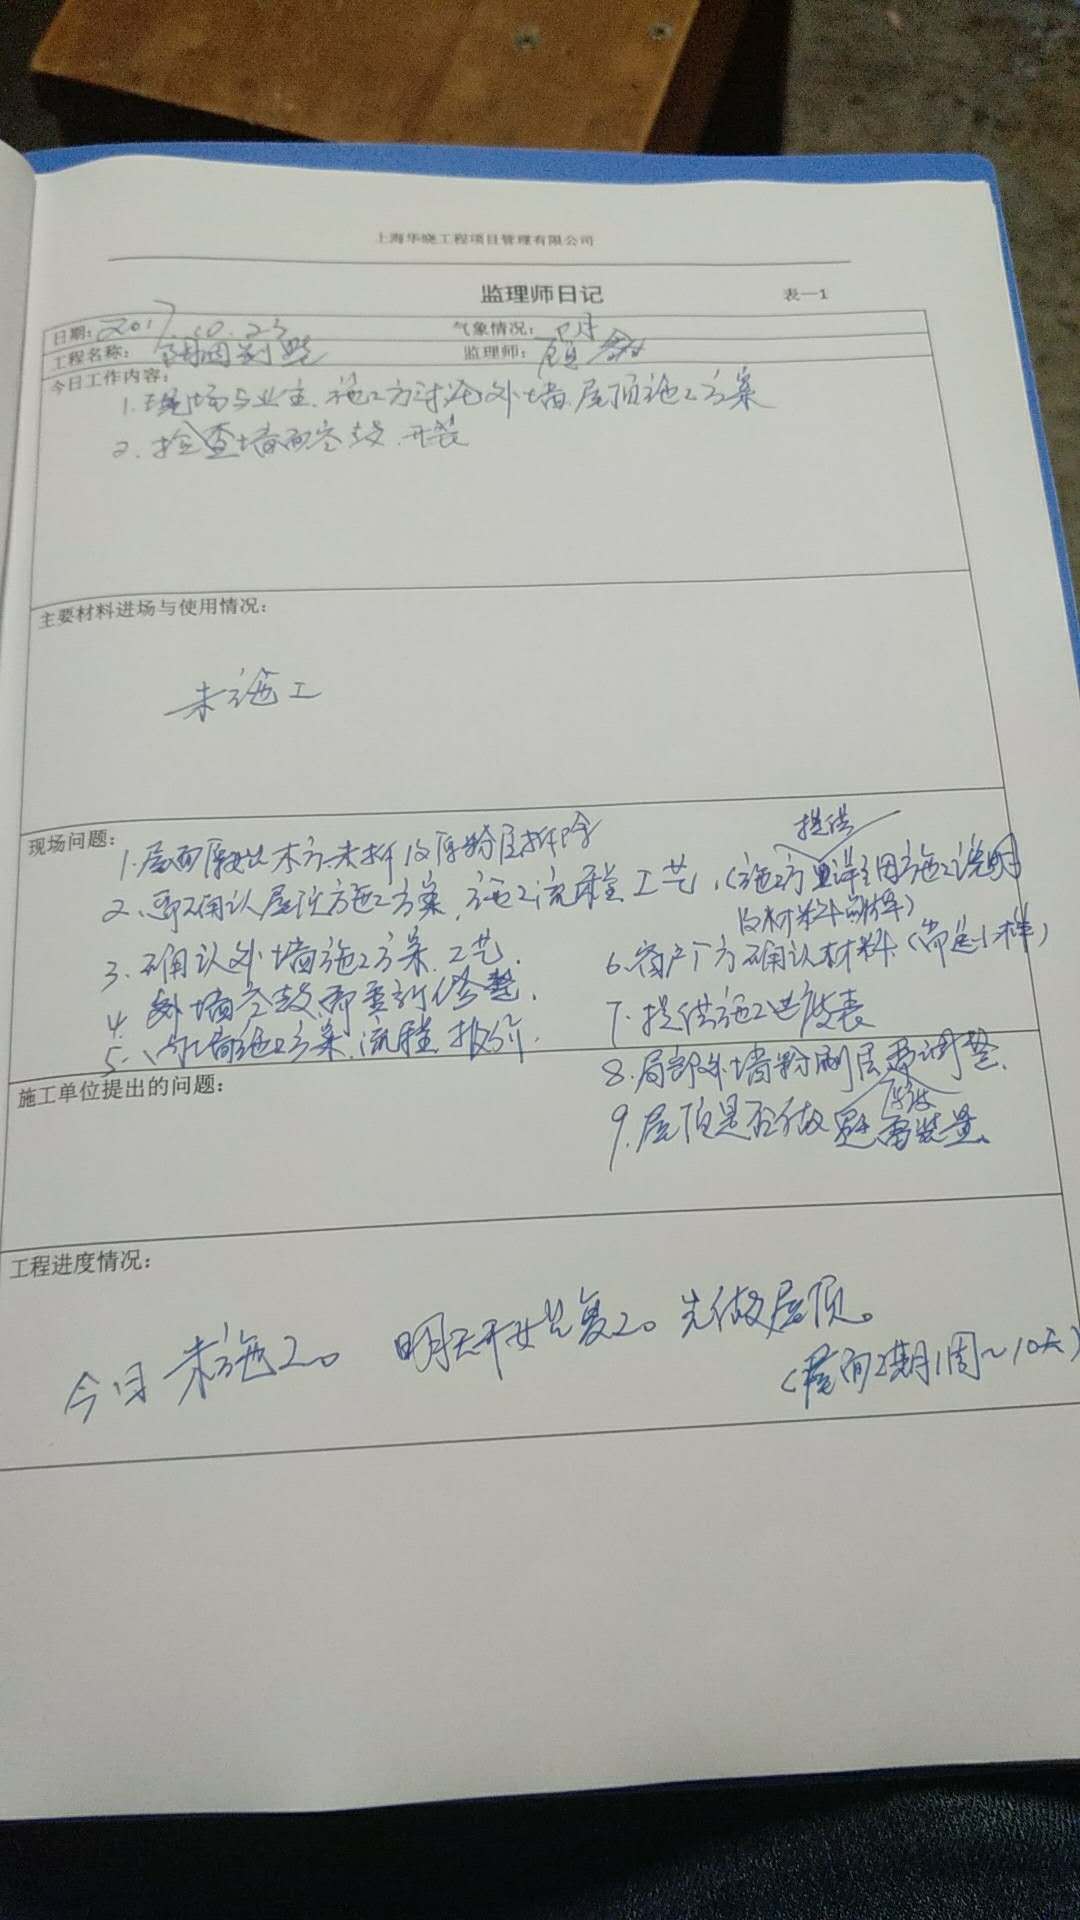 上海华晓工程项目管理有限公司
监理师日记 表一1
日期: 2017.10.23 气象情况: 阴
工程名称: 监理师: 顾
今日工作内容:
1.现场与业主.施工方讨论外墙.屋顶施工方案
2.检查墙面空鼓.开裂
主要材料进场与使用情况:
未施工
现场问题:
1.屋面 木方未拆及原粉层拆除
提供
2.要确认屋顶施工方案.施工流程.工艺.(施工方 详细施工说明
及材料 )
3.确认外墙施工方案.工艺.
6.客户方确认材料(需送小样)
4.外墙空鼓.需要 修整.
7.提供施工进度表
5.内墙施工方案.流程.报价.
8.局部外墙粉刷层需调整.
施工单位提出的问题:
9.屋顶是否做避雷装置.
工程进度情况:
今日未施工。明天开始复工。先做屋顶。
(屋面工期1周~10天)